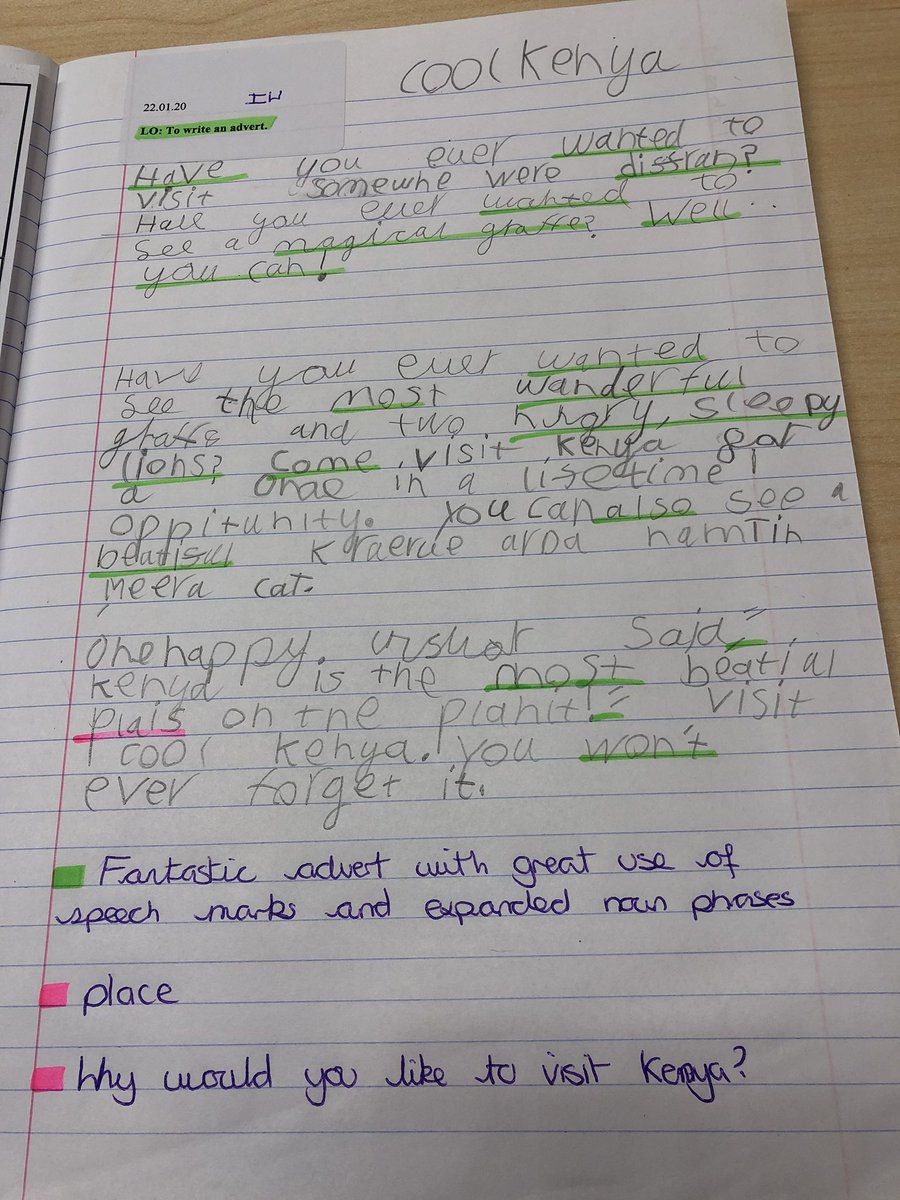 cool Kenya
22.01.20 IW
LO: To write an advert.
Have you ever wanted to
visit somewhe were disstran?
Have you ever wanted to
see a magical graffe? Well..
you can!
Have you ever wanted to
see the most wanderful
graffe and two hungry, sleepy
lions? Come visit kenya
a in a lifetime
oppitunity. You can also see a
beatisul
meera cat.
One happy said"
kenya is the most beatial
plais on the planit!" visit
cool kenya. you won't
ever forget it.
Fantastic advert with great use of
speech marks and expanded noun phrases
place
Why would you like to visit Kenya?